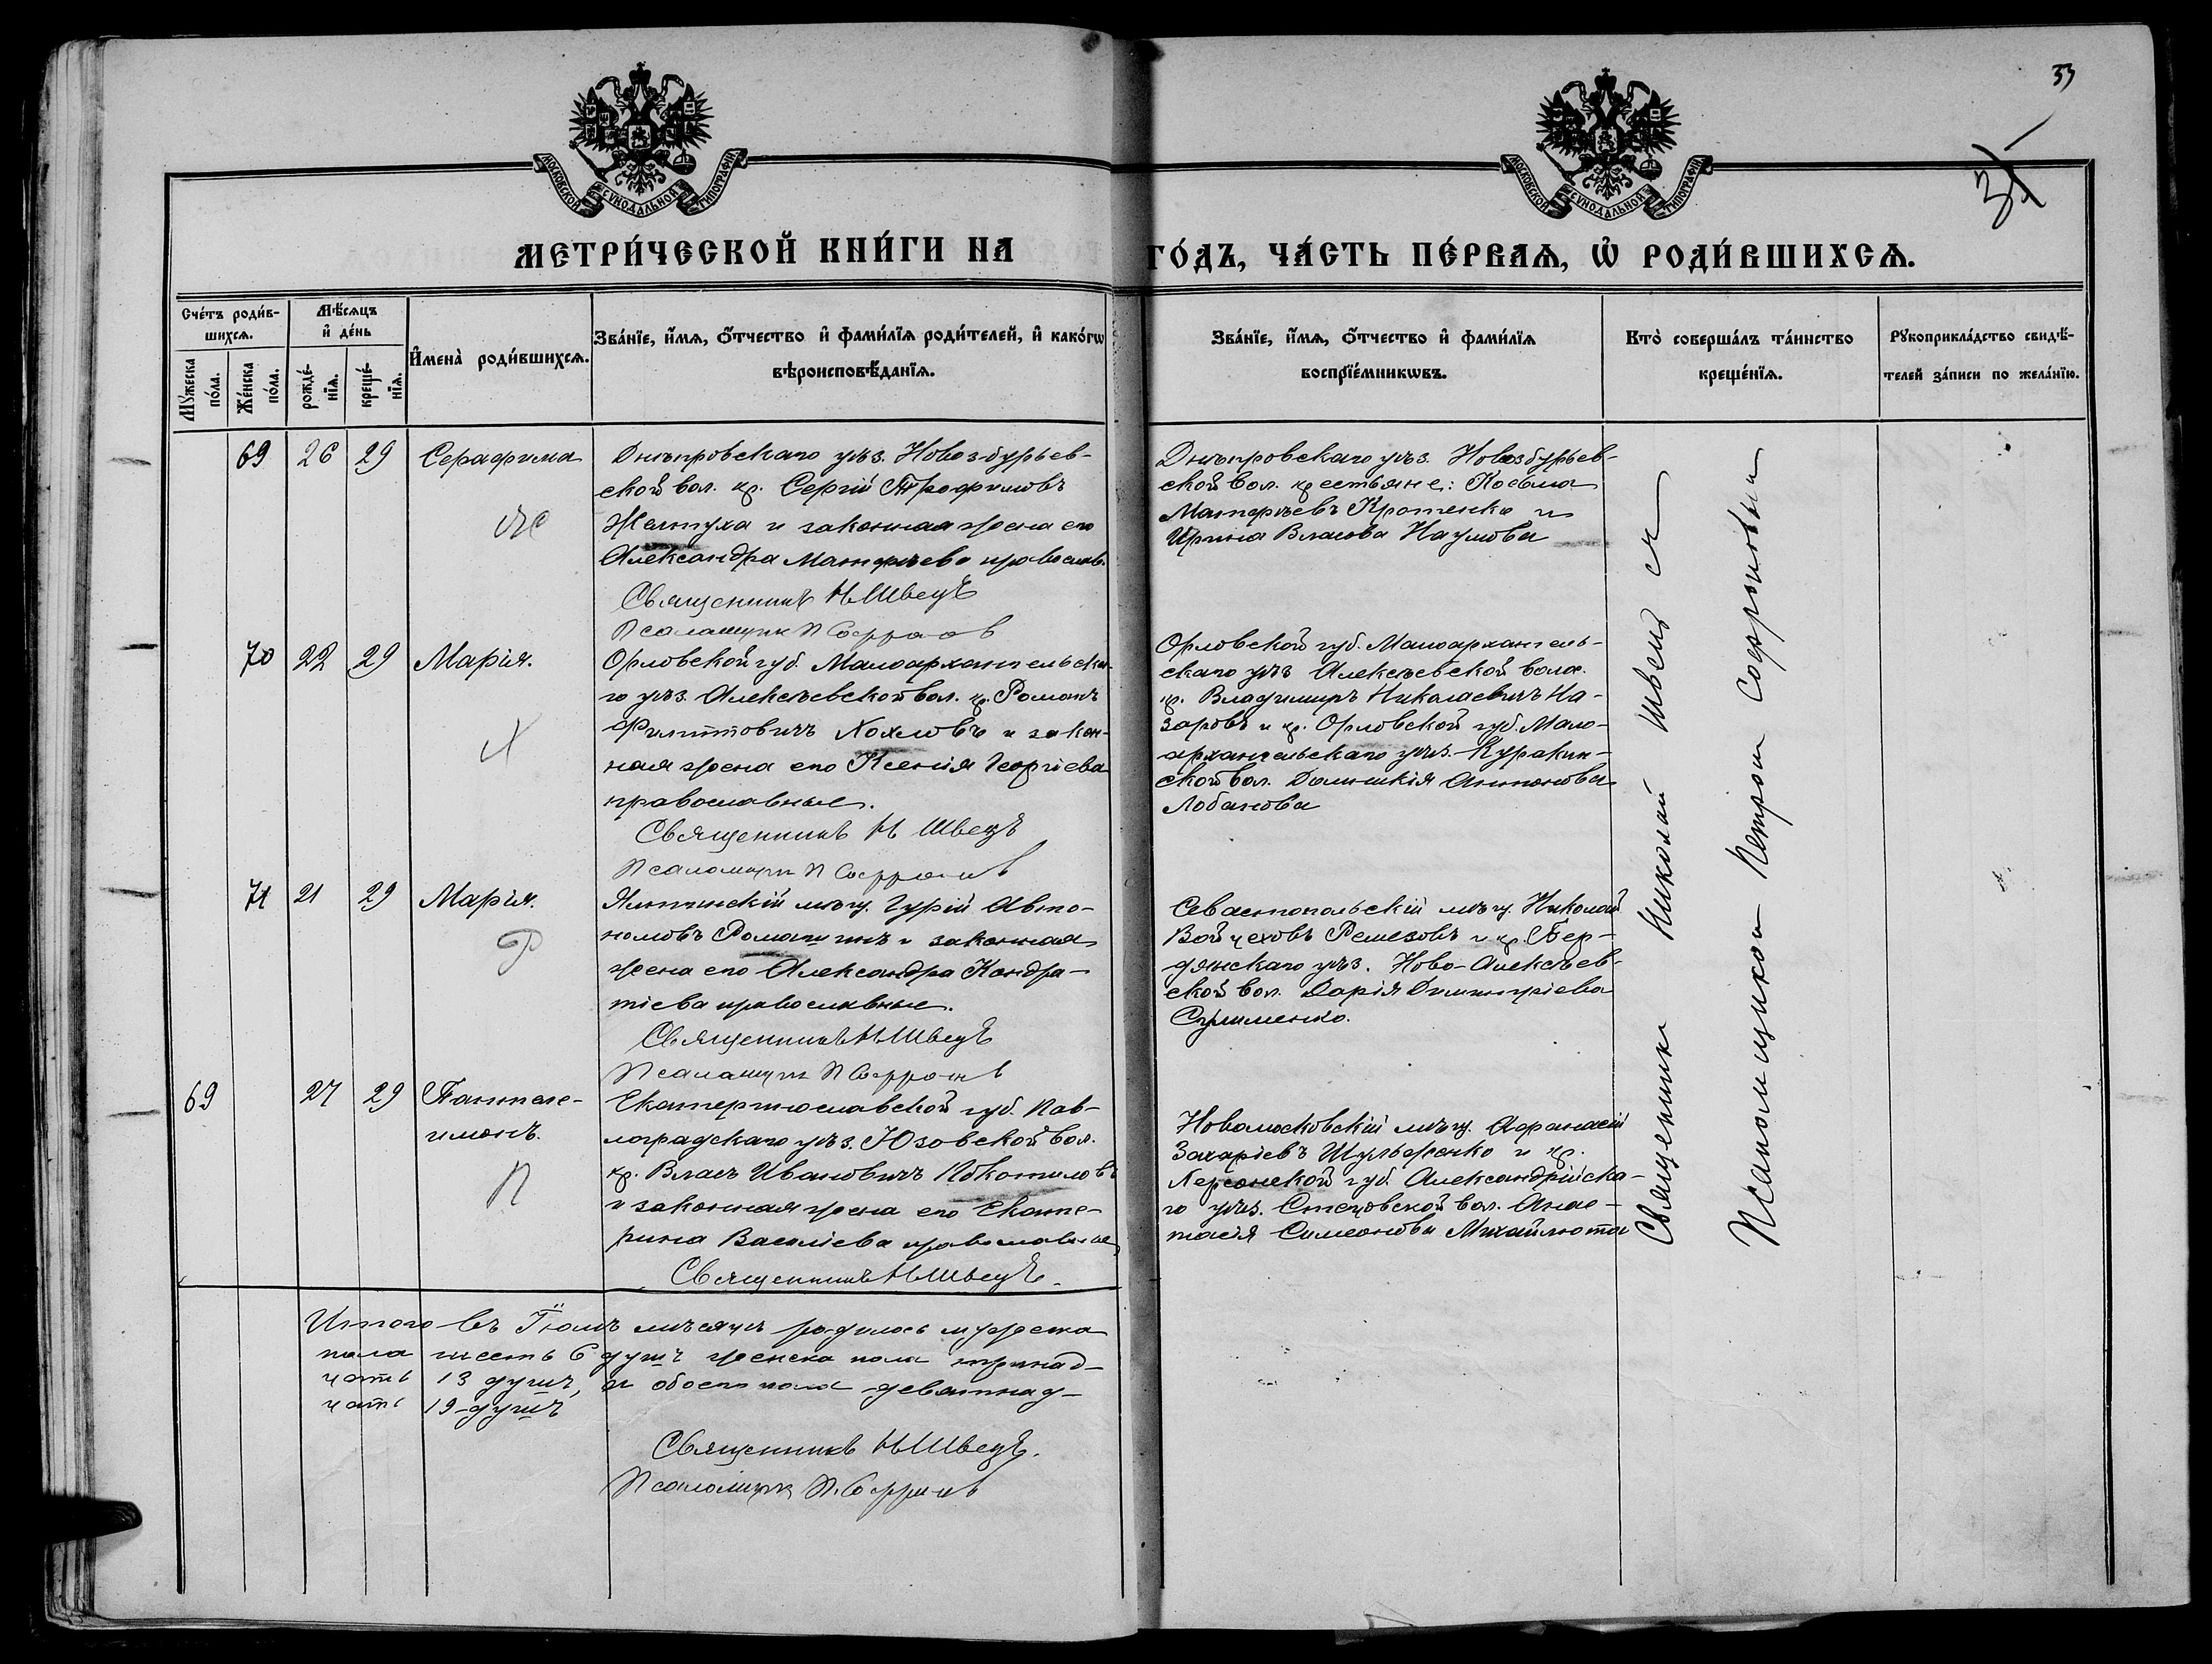 33
31
МОСКОВСКОЙ СУНОДАЛЬНОЙ ТИПОГРАФІИ
МОСКОВСКОЙ СУНОДАЛЬНОЙ ТИПОГРАФІИ
МЕТРИ́ЧЕСКОЙ КНИ́ГИ НА
ГО́ДЪ, ЧА́СТЬ ПЕ́РВАѦ, Ѽ РОДИ́ВШИХСѦ.
Сче́тъ роди́в-
шихсѧ.
Мꙋ́жеска по́ла.
Же́нска по́ла.
Мѣ́сѧцъ
и҆ де́нь
рожде́-
нїѧ.
креще́-
нїѧ.
И҆мена̀ роди́вшихсѧ.
Зва́нїе, и҆́мѧ, ѻ҆́тчество и҆ фами́лїѧ роди́телей, и҆ како́гѡ
вѣроисповѣ́данїѧ.
Зва́нїе, и҆́мѧ, ѻ҆́тчество и҆ фами́лїѧ
воспрїе́мникѡвъ.
Кто̀ соверша́лъ та́инство
креще́нїѧ.
Рꙋкоприкла́дство свидѣ́-
телей за́писи по жела́нїю.
69 26 29 Серафима
Днѣпровскаго уѣз. Новозбурьев-
ской вол. кр. Сергій Трофимовъ
Желтуха и законная жена его
Александра Матфѣева православ.
Священникъ Н Швецъ
Псаломщик П Софронов
Днѣпровскаго уѣз. Новозбурьев-
ской вол. крестьяне: Косьма
Матфѣевъ Кротенко и
Ирина Власова Наумова
70 22 29 Марія.
Х
Орловской губ. Малоархангельска-
го уѣз. Алексѣевской вол. кр. Романъ
Филиповичъ Хохловъ и закон-
ная жена его Ксенія Георгіева
православные.
Священникъ Н Швецъ
Псаломщик П Софронов
Орловской губ. Малоархангель-
скаго уѣз Алексѣевской воло.
кр. Владимиръ Николаевичъ На-
заровъ и кр. Орловской губ. Мало-
архангельскаго уѣз. Куракин-
ской вол. Домникія Антонова
Лобанова
71 21 29 Марія.
Р
Ялтинскій мѣщ. Гурій Авто-
номовъ Ромашинъ и законная
жена его Александра Кондра-
тіева православные.
Священникъ Н Швецъ
Псаломщик П Софронов
Севастопольскій мѣщ. Николай
Войцеховъ Ремезовъ и кр. Бер-
дянскаго уѣз. Ново-Алексѣев-
ской вол. Дарія Димитріева
Сулименко.
69 27 29 Пантеле-
имонъ.
П
Екатеринославской губ. Пав-
лоградскаго уѣз. Юзовской вол.
кр. Власъ Ивановичъ Покотиловъ
и законная жена его Екате-
рина Василіева православные
Священникъ Н Швецъ.
Новомосковскій мѣщ. Афанасій
Захаріевъ Шульженко и кр.
Херсонской губ. Александрійска-
го уѣз. Стецовской вол. Анас-
тасія Симеонова Михайлюта
Священник Николай Швец с
Псаломщиком Петром Софроновым
Итого въ Іюлѣ мѣсяцѣ родилось мужеска
пола шесть 6 душъ женска пола тринад-
цать 13 душъ, а обоего пола девятнад-
цать 19 душъ
Священникъ Н Швецъ.
Псаломщик П. Софронов